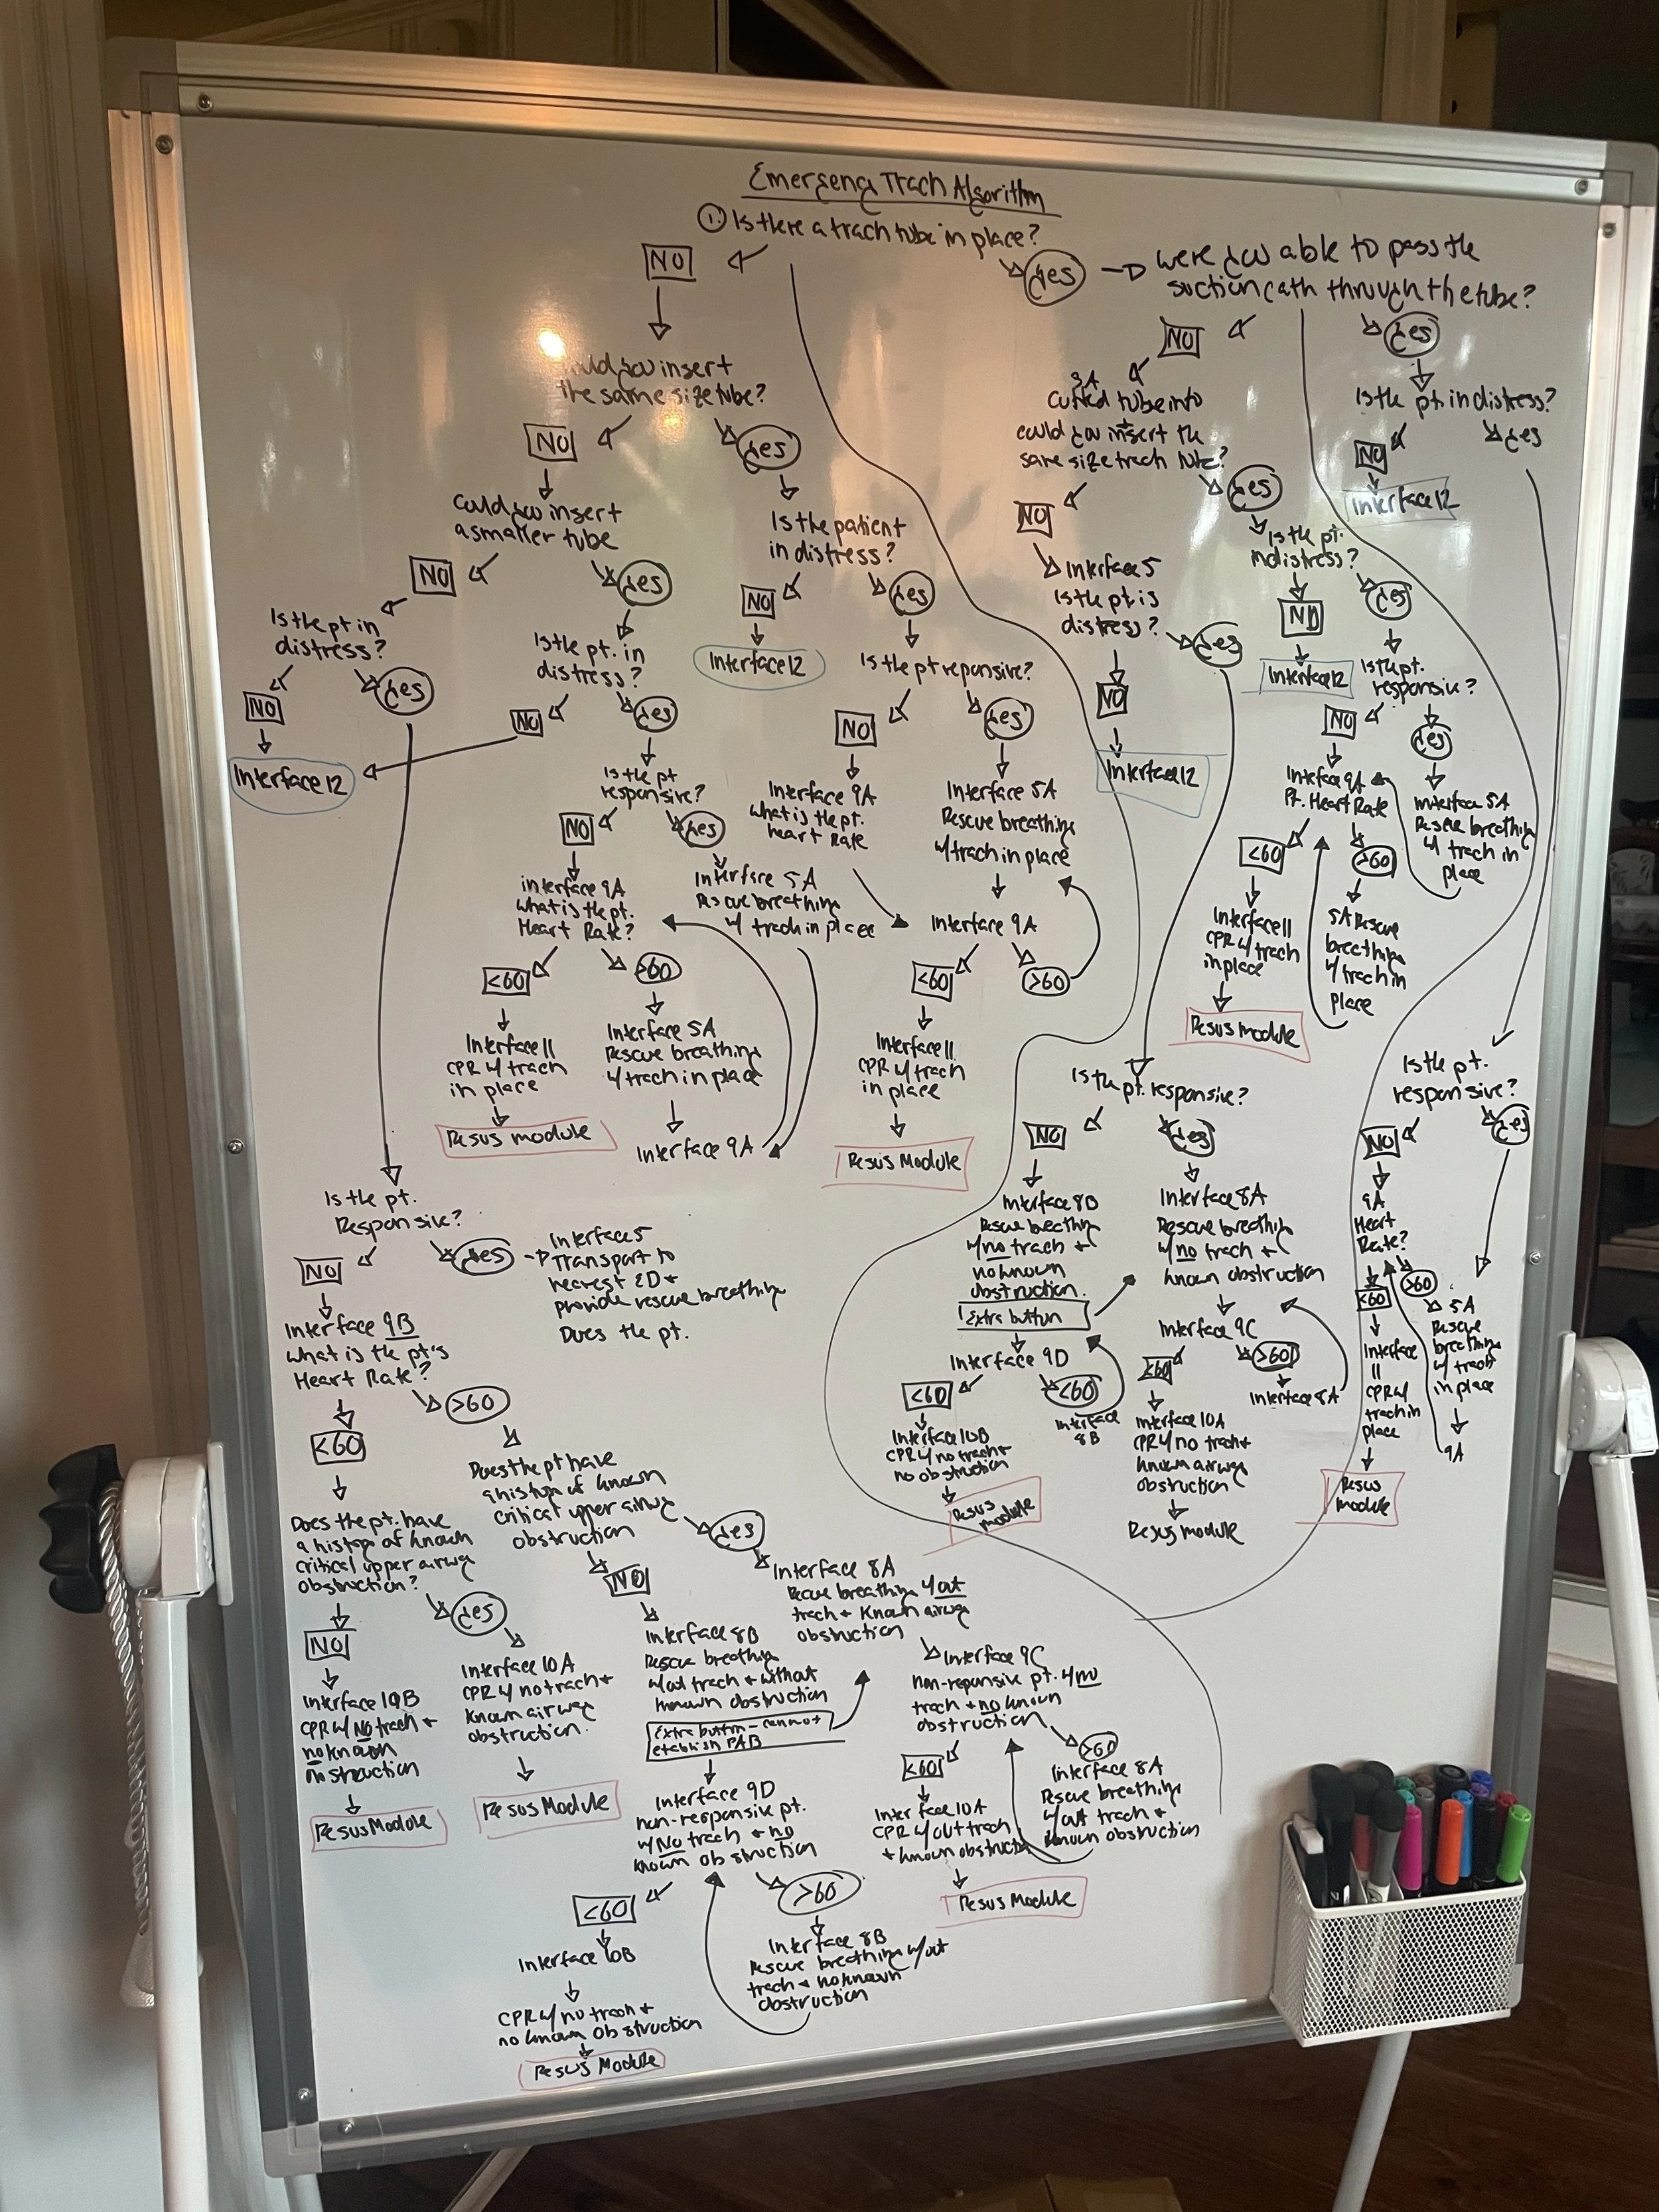 Emergency Trach Algorithm
① Is there a trach tube in place?
NO
yes
were you able to pass the
suction cath through the tube?
NO
yes
could you insert
the same size tube?
NO
yes
Could you insert
a smaller tube
NO
yes
Is the pt in
distress?
NO
yes
Interface 12
Is the pt. in
distress?
NO
yes
Is the pt
responsive?
NO
yes
interface 9A
what is the pt.
Heart Rate?
<60
>60
Interface 11
CPR w/ trach
in place
Resus module
Interface 5A
Rescue breathing
w/ trach in place
Interface 9A
Interface 5A
Rescue breathing
w/ trach in place
Is the patient
in distress?
NO
yes
Interface 12
Is the pt reponsive?
NO
yes
Interface 9A
what is the pt.
heart Rate
Interface 5A
Rescue breathing
w/ trach in place
Interface 9A
<60
>60
Interface 11
CPR w/ trach
in place
Resus Module
Is the pt.
Responsive?
NO
yes
Interface 5
Transport to
nearest ED +
provide rescue breathing
Does the pt.
Interface 9B
what is the pt's
Heart Rate?
<60
>60
Does the pt. have
a history of known
critical upper airway
obstruction?
NO
yes
Interface 10B
CPR w/ No trach +
no known
obstruction
Resus Module
Interface 10A
CPR w/ no trach +
known airway
obstruction.
Resus Module
Does the pt have
a history of known
critical upper airway
obstruction
NO
yes
Interface 8B
Rescue breathing
w/out trach + without
known obstruction
Extra button - cannot
establish PAB
Interface 9D
non-responsive pt.
w/ No trach + no
known obstruction
<60
>60
Interface 10B
CPR w/ no trach +
no known obstruction
Resus Module
Interface 8B
Rescue breathing w/out
trach + no known
obstruction
Interface 8A
Rescue breathing w/out
trach + known airway
obstruction
Interface 9C
non-reponsive pt. w/ no
trach + no known
obstruction
<60
>60
Interface 10A
CPR w/out trach
+ known obstruction
Resus Module
Interface 8A
Rescue breathing
w/out trach +
known obstruction
3A
tube into
could you insert the
same size trach tube?
NO
yes
Interface 5
Is the pt is
distress?
NO
yes
Interface 12
Is the pt.
in distress?
NO
yes
Interface 12
Is the pt.
responsive?
NO
yes
Interface 9A
Pt. Heart Rate
<60
>60
Interface 11
CPR w/ trach
in place
Resus module
5A Rescue
breathing
w/ trach in
place
interface 5A
Rescue breathing
w/ trach in
place
Is the pt. responsive?
NO
yes
Interface 8B
Rescue breathing
w/ no trach +
no known
obstruction.
Extra button
Interface 9D
<60
<60
Interface
8B
Interface 10B
CPR w/ no trach +
no obstruction
Resus
module
Interface 8A
Rescue breathing
w/ no trach +
known obstruction
Interface 9C
<60
>60
Interface 8A
Interface 10A
CPR w/ no trach +
known airway
obstruction
Resus module
Is the pt. in distress?
NO
yes
Interface 12
Is the pt.
responsive?
NO
yes
9A
Heart
Rate?
<60
>60
Interface
11
CPR w/
trach in
place
Resus
module
5A
Rescue
breathing
w/ trach
in place
9A